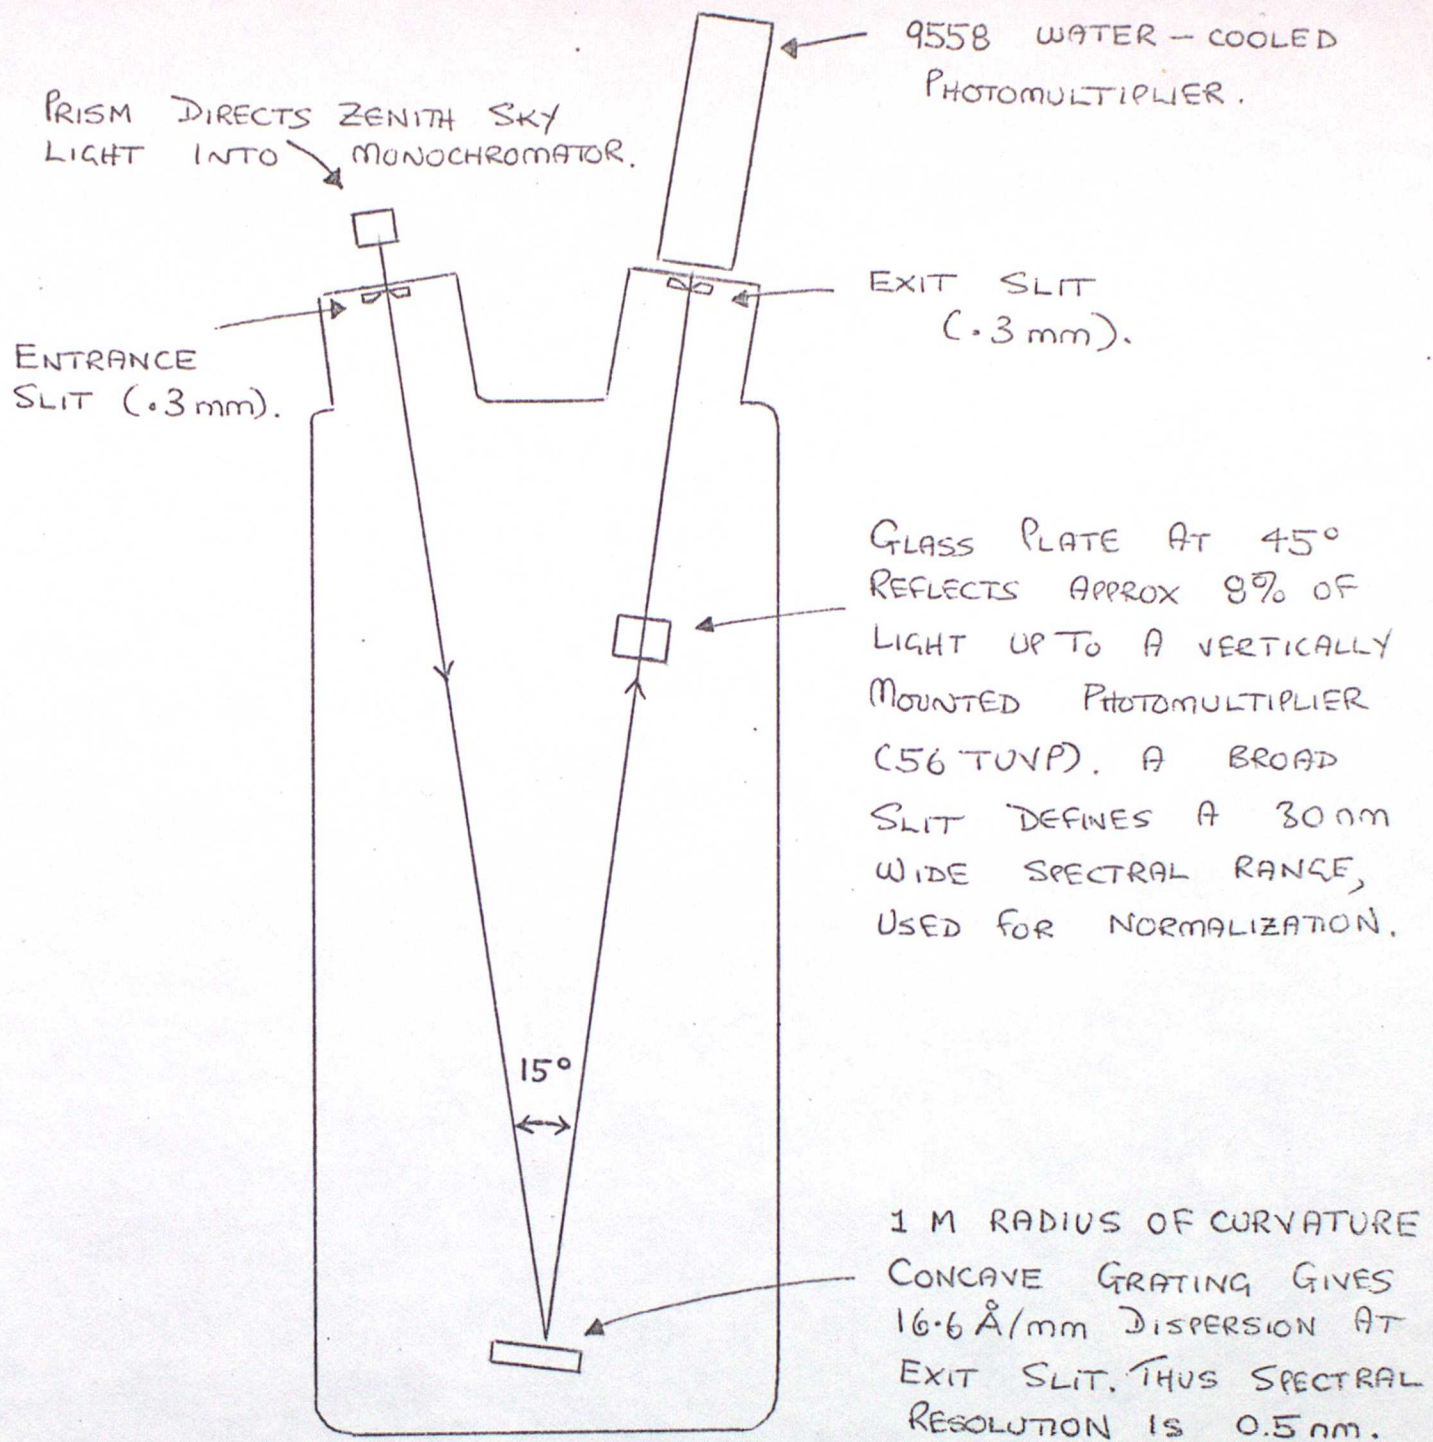 9558 WATER - COOLED
PHOTOMULTIPLIER.
PRISM DIRECTS ZENITH SKY
LIGHT INTO MONOCHROMATOR.
ENTRANCE
SLIT (.3mm).
EXIT SLIT
(.3mm).
GLASS PLATE AT 45°
REFLECTS APPROX 8% OF
LIGHT UP TO A VERTICALLY
MOUNTED PHOTOMULTIPLIER
(56 TUVP). A BROAD
SLIT DEFINES A 30nm
WIDE SPECTRAL RANGE,
USED FOR NORMALIZATION.
15°
1 M RADIUS OF CURVATURE
CONCAVE GRATING GIVES
16.6 Å/mm DISPERSION AT
EXIT SLIT. THUS SPECTRAL
RESOLUTION IS 0.5nm.